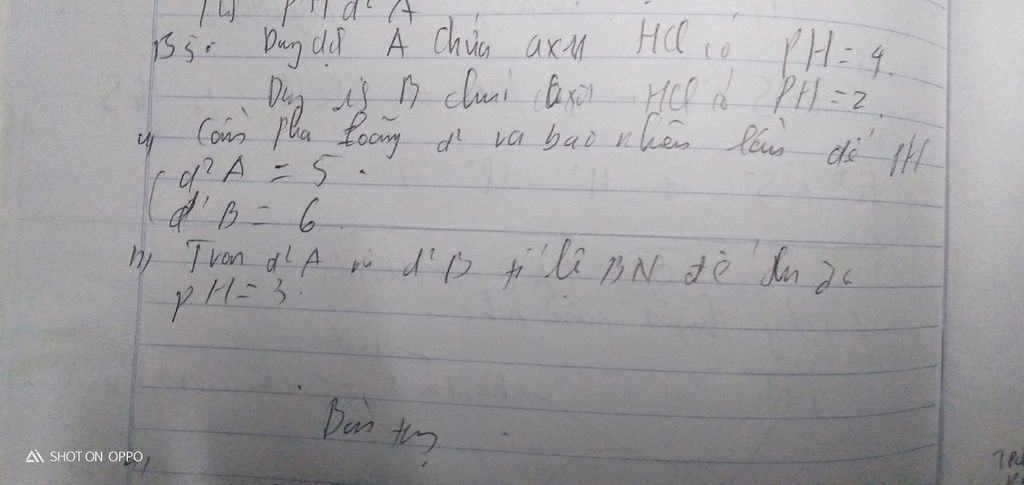 PH d² A
B5: Dung dịch A chứa axit HCl có PH = 4.
Dung B chứa HCl có PH = 2
Cần pha loãng d² va bao nhiêu lần để PH
d² A = 5.
d² B = 6
b, Trộn d² A và d² B tỉ lệ BN để thu
pH = 3.
SHOT ON OPPO